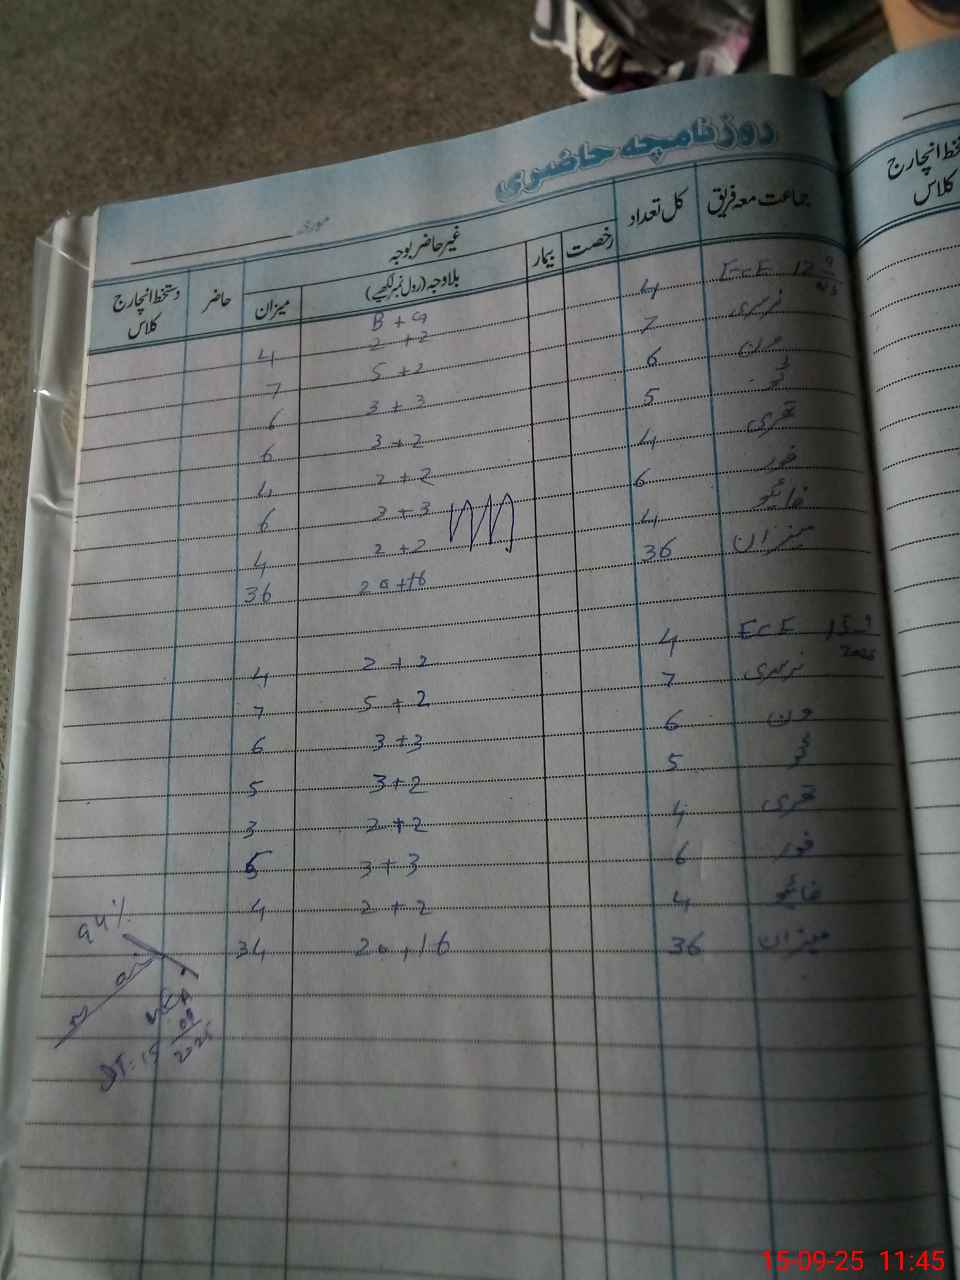 روزنامچہ حاضری
مورخہ
جماعت معہ فریق کل تعداد رخصت بیمار غیر حاضر بوجہ بلاوجہ (رول نمبر لکھیے) میزان حاضر دستخط انچارج کلاس
B + G
ECE 12 9 4 2 + 2 4
نرسری 7 5 + 2 7
ون 6 3 + 3 6
ٹو 5 3 + 2 6
تھری 4 2 + 2 4
فور 6 3 + 3 6
فائیو 4 2 + 2 4
میزان 36 20 + 16 36
ECE 15 9 2025 4 2 + 2 4
نرسری 7 5 + 2 7
ون 6 3 + 3 6
ٹو 5 3 + 2 5
تھری 4 2 + 2 3
فور 6 3 + 3 5
فائیو 4 2 + 2 4
میزان 36 20 , 16 34
94%
DT: 15 09 2025
دستخط انچارج
کلاس
15-09-25 11:45